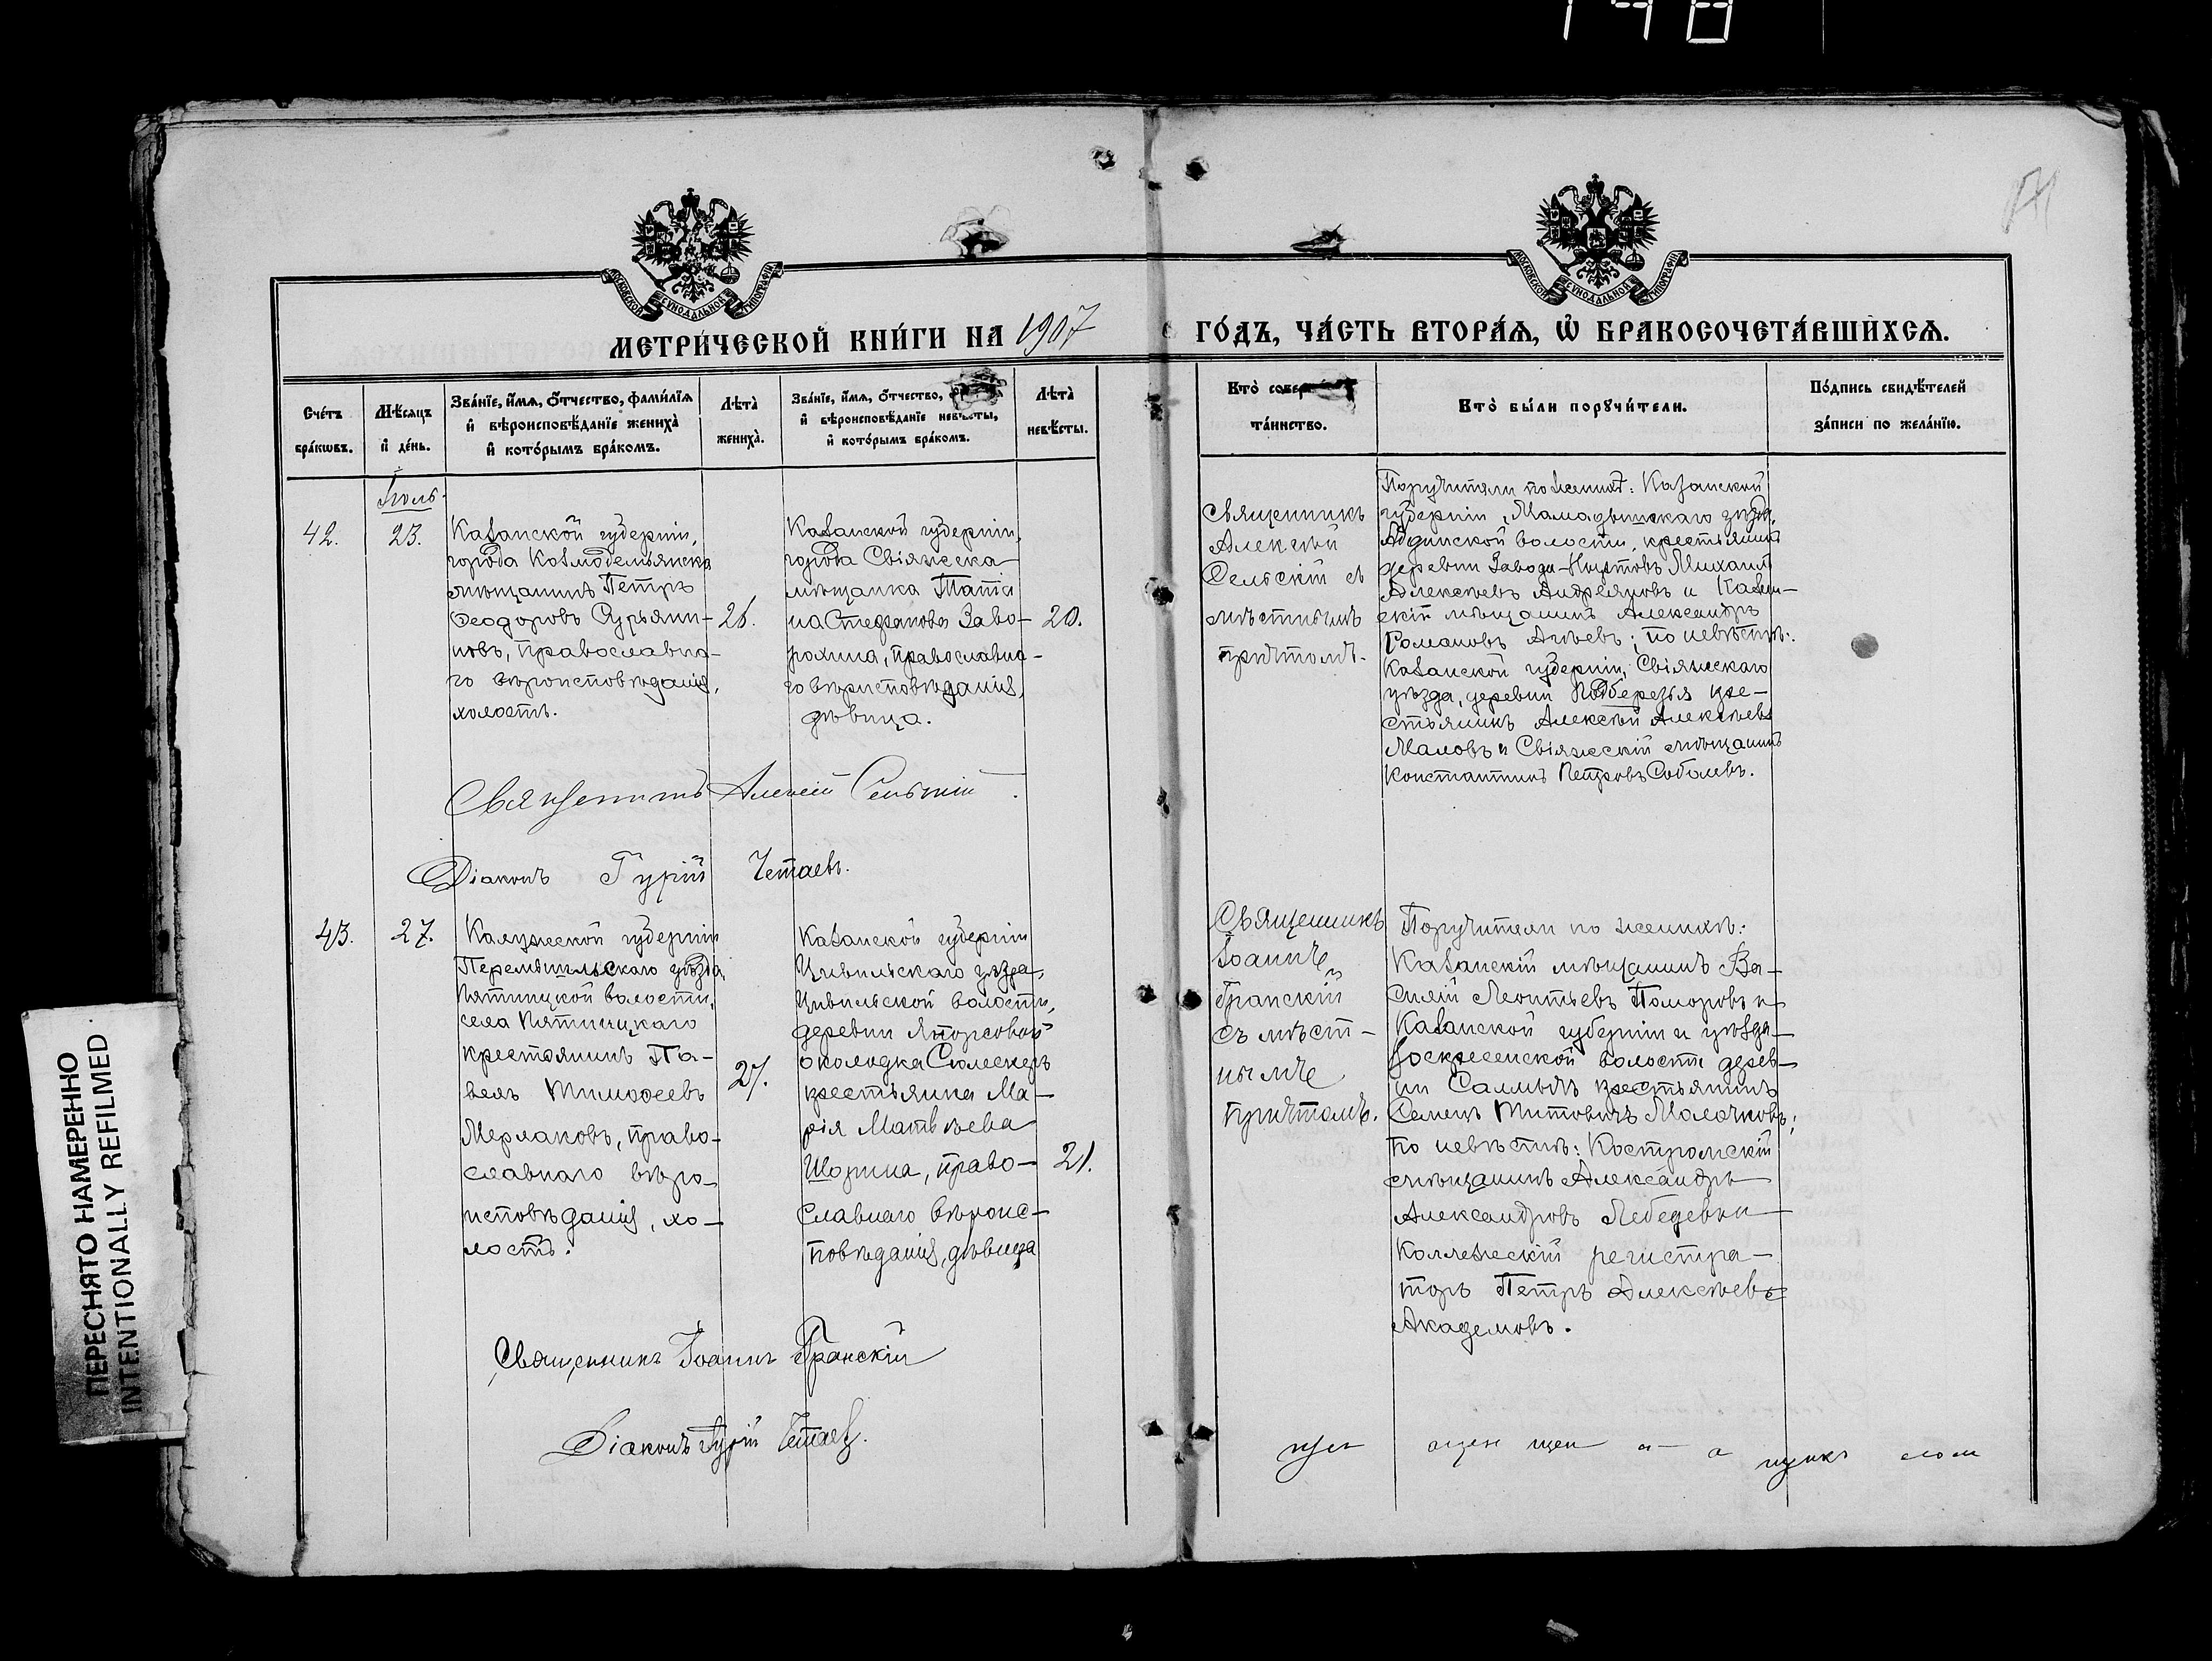 198
МОСКОВСКОЙ СУНОДАЛЬНОЙ ТИПОГРАФІИ
МОСКОВСКОЙ СУНОДАЛЬНОЙ ТИПОГРАФІИ
МЕТРИ́ЧЕСКОЙ КНИ́ГИ НА 1907 ГО́ДЪ, ЧА́СТЬ ВТОРА́Я, Ѡ БРАКОСОЧЕТА́ВШИХСЯ.
Сче́тъ
бра́кѡвъ.
Мѣ́сяцъ
и҆ де́нь.
Зва́нїе, и҆́мя, о҆́тчество, фами́лїя
и҆ вѣроисповѣ́данїе жениха̀
и҆ кото́рымъ бра́комъ.
Лѣта̀
жениха̀.
Зва́нїе, и҆́мя, о҆́тчество,
и҆ вѣроисповѣ́данїе невѣ́сты,
и҆ кото́рымъ бра́комъ.
Лѣта̀
невѣ́сты.
Кто̀
та́инство.
Кто̀ бы́ли порꙋчи́тели.
По́дпись свидѣ́телей
за́писи по жела́нїю.
Іюль.
42.
23.
Казанской губерніи,
города Козмодемьянска
мѣщанинъ Петръ
Ѳеодоровъ Сурьяни-
новъ, православна-
го вѣроисповѣданія,
холостъ.
26.
Казанской губерніи,
города Свіяжска
мѣщанка Татія
на Стефанова Заво-
рохина, православна-
го вѣрисповѣданія,
дѣвица.
20.
Священникъ
Алексѣй
Сельскій съ
мѣстнымъ
причтомъ.
Поручители по женихѣ: Казанской
губерніи, Мамадышскаго уѣзда,
Абдинской волости, крестьянинъ
деревни Завода-Ныртовъ Михаилъ
Алексѣевъ Андреяновъ и Казан-
скій мѣщанинъ Александръ
Романовъ Агѣевъ; по невѣстѣ:
Казанской губерніи, Свіяжскаго
уѣзда, деревни Подберезья кре-
стьянинъ Алексѣй Алексѣевъ
Маловъ и Свіяжскій мѣщанинъ
Константинъ Петровъ Соболевъ.
Священникъ Алексій Сельскій.
Діаконъ Гурій Четаевъ.
43.
27.
Калужской губерніи
Перемышльскаго уѣзда,
Пятницкой волости,
села Пятницкаго
крестьянинъ Па-
велъ Тимоѳеевъ
Мерлаковъ, право-
славнаго вѣро-
исповѣданія, хо-
лостъ.
27.
Казанской губерніи
Цивильскаго уѣзда,
Цивильской волости,
деревни
околодка
крестьянка Ма-
рія Матвѣева
Шорина, право-
славнаго вѣроис-
повѣданія, дѣвица
21.
Священникъ
Іоаннъ
Гранскій
съ мѣст-
нымъ
причтомъ.
Поручители по женихѣ:
Казанскій мѣщанинъ Ва-
силій Леонтьевъ Поморовъ и
Казанской губерніи и уѣзда
Воскресенской волости дерев-
ни Салмыкъ крестьянинъ
Семенъ Титовичъ Малачковъ;
по невѣстѣ: Костромскій
мѣщанинъ Александръ
Александровъ Лебедевъ и
Коллежскій регистра-
торъ Петръ Алексѣевъ
Академовъ.
Священникъ Іоаннъ Гранскій
Діаконъ Гурій Четаевъ.
ПЕРЕСНЯТО НАМЕРЕННО
INTENTIONALLY REFILMED